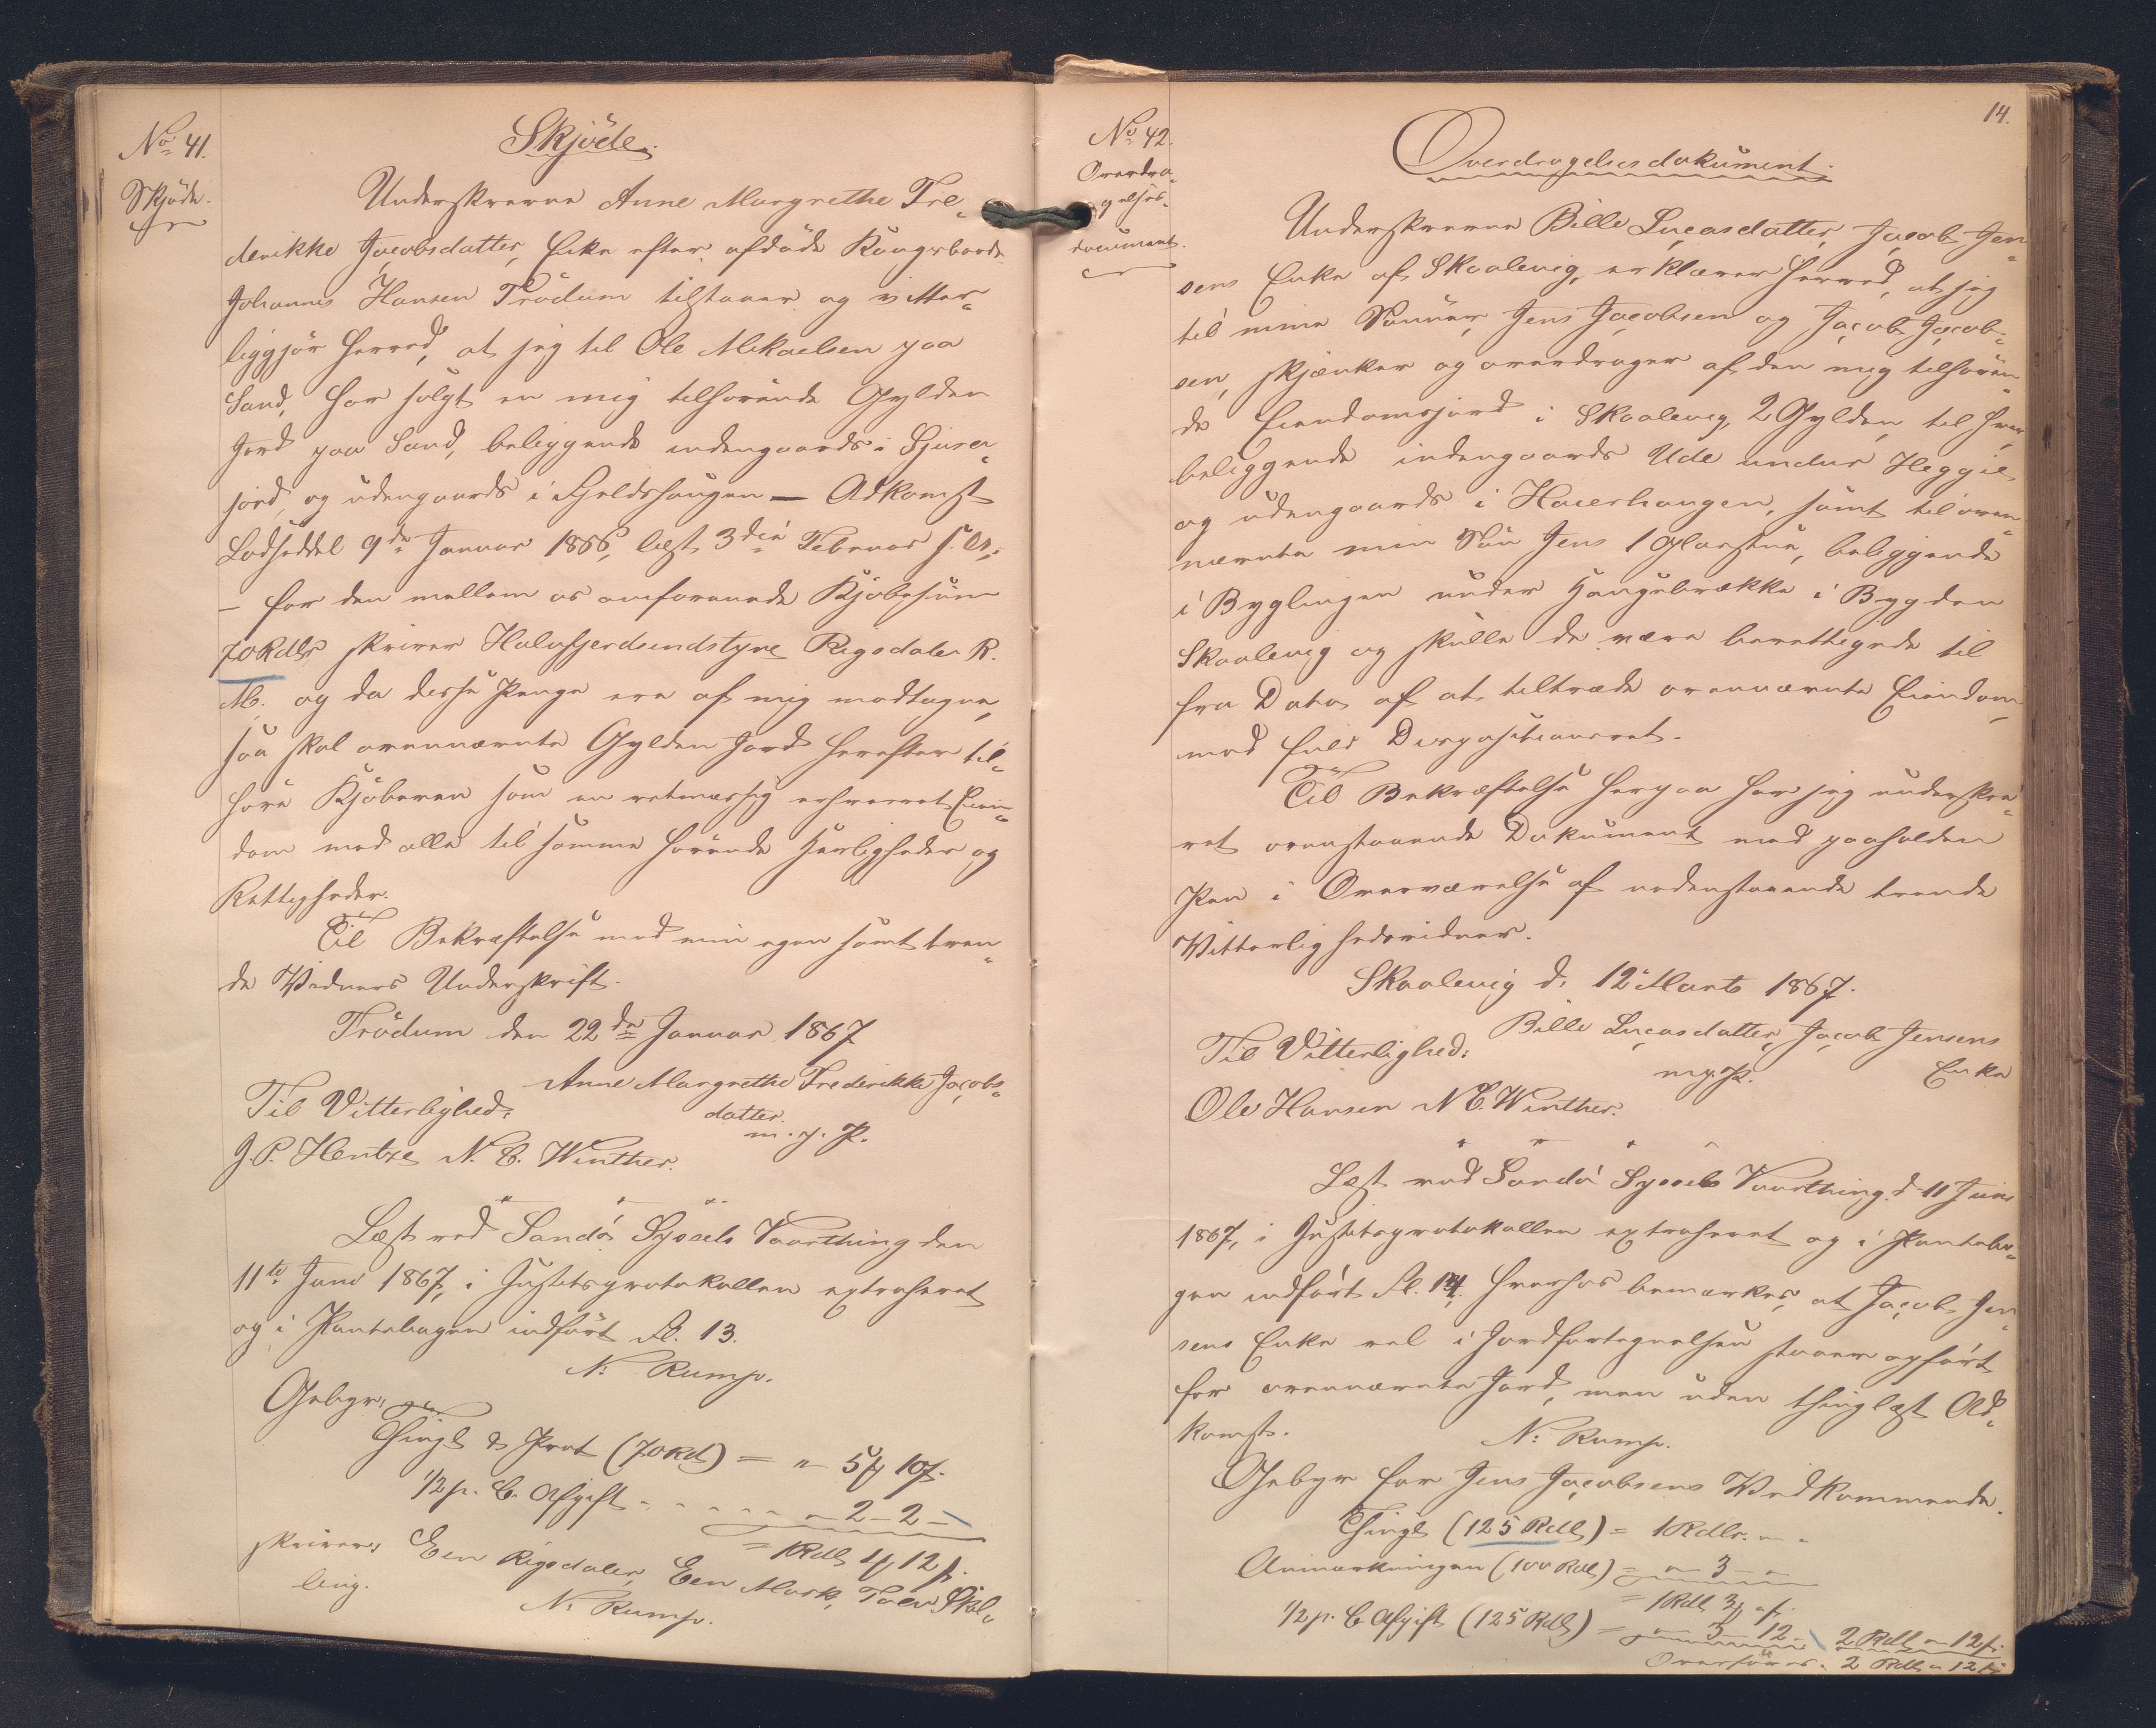 No 41.
Skjöde.
Skjöde.
Underskrevne Anne Margrethe Fre-
derikke Jacobsdatter, Enke efter afdöde Kongsbonde
Johannes Hansen Trödum tilstaaer og vitter-
liggjör herved, at jeg til Ole Mikaelsen paa
Sand, har solgt en mig tilhörende Gylden
Jord paa Sand, beliggende indengaards i Gjuser-
jord, og udengaards i Fjeldshaugen — Adkomst
Lodseddel 9de Januar 1866, læst 3die Februar s. A.
— for den mellem os omforenede Kjöbesum
70 Rdlr skriver Halvfjerdsindstyve Rigsdaler R.
M. og da disse Penge ere af mig modtagne,
saa skal ovennævnte Gylden Jord herefter til-
höre Kjöberen som en retmæssig erhvervet Eien-
dom med alle til samme hörende Herligheder og
Rettigheder.
Til Bekræftelse med min egen samt tven-
de Vidners Underskrift.
Trödum den 22de Januar 1867
Anne Margrethe Frederikke Jacobs-
datter.
m. p. P.
Til Vitterlighed:
J. P. Hentze N. C. Winther.
Læst ved Sandö Syssels Vaarthing den
11te Juni 1867, i Justitsprotokollen extraheret
og i Pantebogen indfört Fl. 13.
N: Rump.
Gebyr:
Thingl & Prot (70 Rd) = " 5 ꝳ 10 ß.
1/2 p. C. Afgift - - - - - 2 - 2 -
= 1 Rdl 1 ꝳ 12 ß.
skriver Een Rigsdaler, Een Mark, Tolv Skil-
ling.
N: Rump.
14.
No 42.
Overdra-
gelses-
document.
Overdragelsesdokument.
Underskrevne Bille Lucasdatter, Jacob Jen-
sens Enke af Skaalevig, erklærer herved, at jeg
til mine Sönner, Jens Jacobsen og Jacob Jacob-
sen, skjænker og overdrager af den mig tilhören-
de Eiendomsjord i Skaalevig, 2 Gylden til hver
beliggende indengaards Ude under Heggie
og udengaards i Haierhaugen, samt til oven-
nævnte min Sön Jens 1 Glasstue, beliggende
i Byglingen under Haugebrække i Bygden
Skaalevig og skulle de være berettigede til
fra Dato af at tiltræde ovennævnte Eiendom,
med fuld Dispositionsret.
Til Bekræftelse herpaa har jeg underskre-
vet ovenstaaende Dokument med paaholden
Pen i Overværelse af nedenstaaende tvende
Vitterlighedsvidner.
Skaalevig d. 12 Marts 1867.
Bille Lucasdatter, Jacob Jensens
Enke
m. p. P.
Til Vitterlighed:
Ole Hansen N C. Winther.
Læst ved Sandö Syssels Vaarthing d 11 Juni
1867, i Justitsprotokollen extraheret og i Pantebo-
gen indfört Fl. 14. hvorhos bemærkes, at Jacob Jen-
sens Enke vel i Jordfortegnelsen staaer opfört
for ovennævnte Jord, men uden thinglæst Ad-
komst.
N: Rump.
Gebyr for Jens Jacobsens Vedkommende.
Thingl (125 Rdl) = 1 Rdlr. " "
Anmærkningen (100 Rdl) = " 3 - "
= 1 Rdl 3 ꝳ " ß.
1/2 p. C Afgift (125 Rdl) = " 3 - 12 - 2 Rdl " 12 ß.
Overföres. 2 Rdl " 12 ß